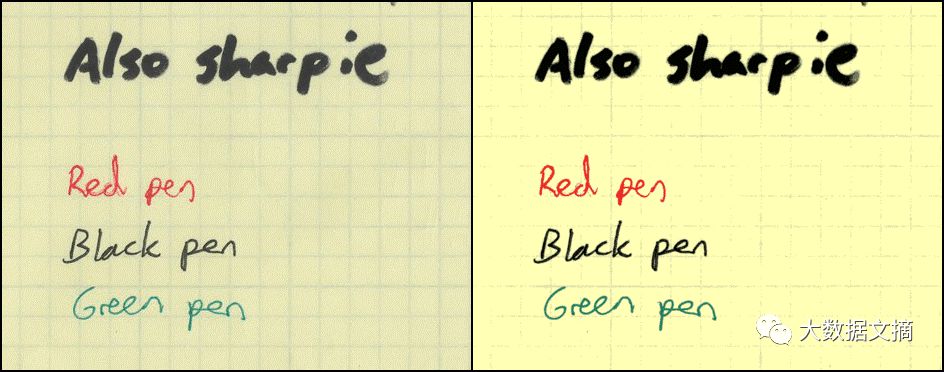 Also sharpie
Red pen
Black pen
Green pen
Also sharpie
Red pen
Black pen
Green pen
大数据文摘